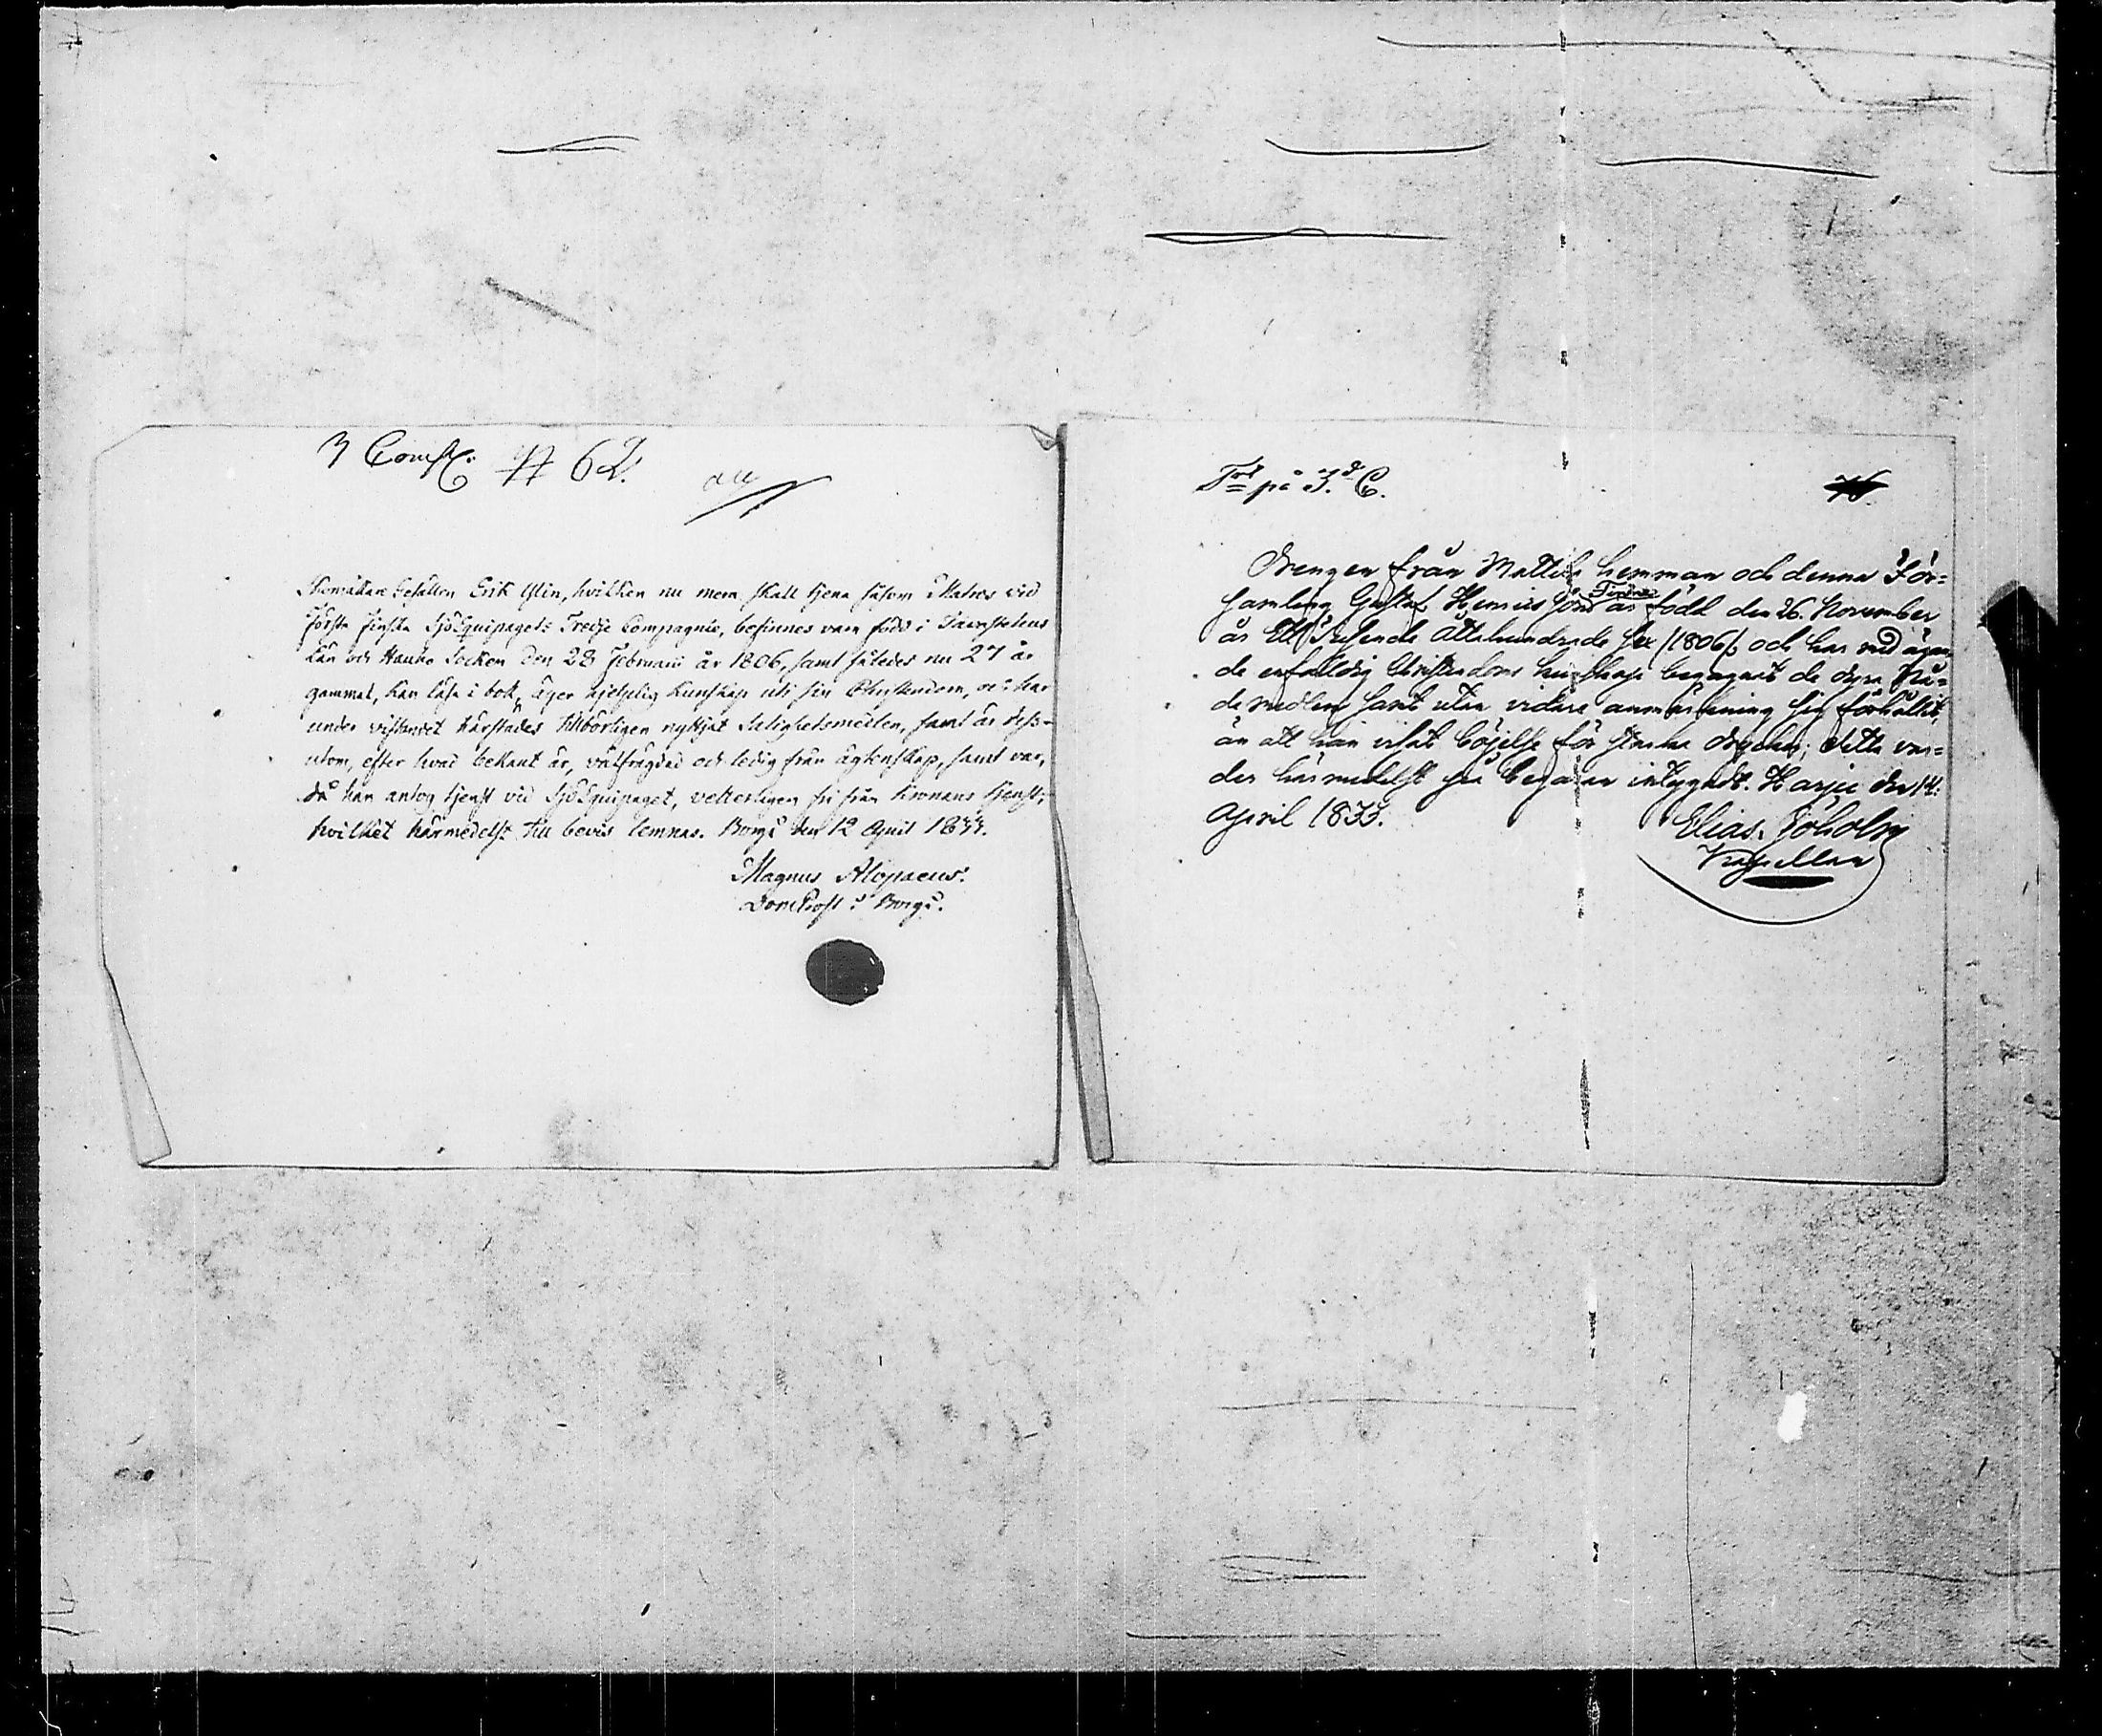 3 Comp. № 62.
Skomakare Gesällen Erik Ulin, hvilken nu mera skall tjena såsom Matros vid
Första Finska SjöEquipagets Tredje Compagnie, befinnes vara född i Tavastehus
Län och Hauho Socken den 28 Februarii år 1806, samt således nu 27 år
gammal, kan läsa i bok, äger hjelplig kunskap uti sin Christendom, och har
under vistandet härstädes tillbörligen nyttjat Salighetsmedlen, samt är dess-
utom, efter hvad bekant är, välfrägdad och ledig från ägtenskap, samt var,
då han antog tjenst vid SjöEquipaget, vetterligen fri från Kronans tjenst;
hvilket härmedelst till bevis lemnas. Borgå den 12 April 1833.
Magnus Alopaeus.
DomProst i Borgå.
på 3. C.
Drengen från Mattila hemman och denna För-
samling Gustaf Henricsson är född den 26. November
år Ett Tusende Åttahundrade Sex /1806/. och har med ägan-
de enfaldig Christendoms kunskap begagnat de dyra Nå-
demedlen samt utan vidare anmärkning sig förhållit,
än att han visat böjelse för starka drycker; detta var-
der härmedelst på begäran intygadt. Karjis den 14.
April 1833.
Elias Söholm
Kapellan